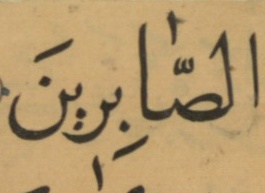 الصَّابِرِينَ